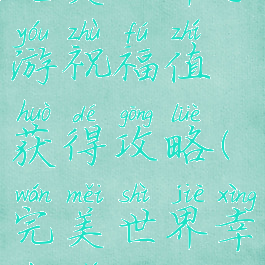 yóu zhù fú zhí
游祝福值
huò dé gōng lüè
获得攻略(
wán měi shì jiè xìng
完美世界幸